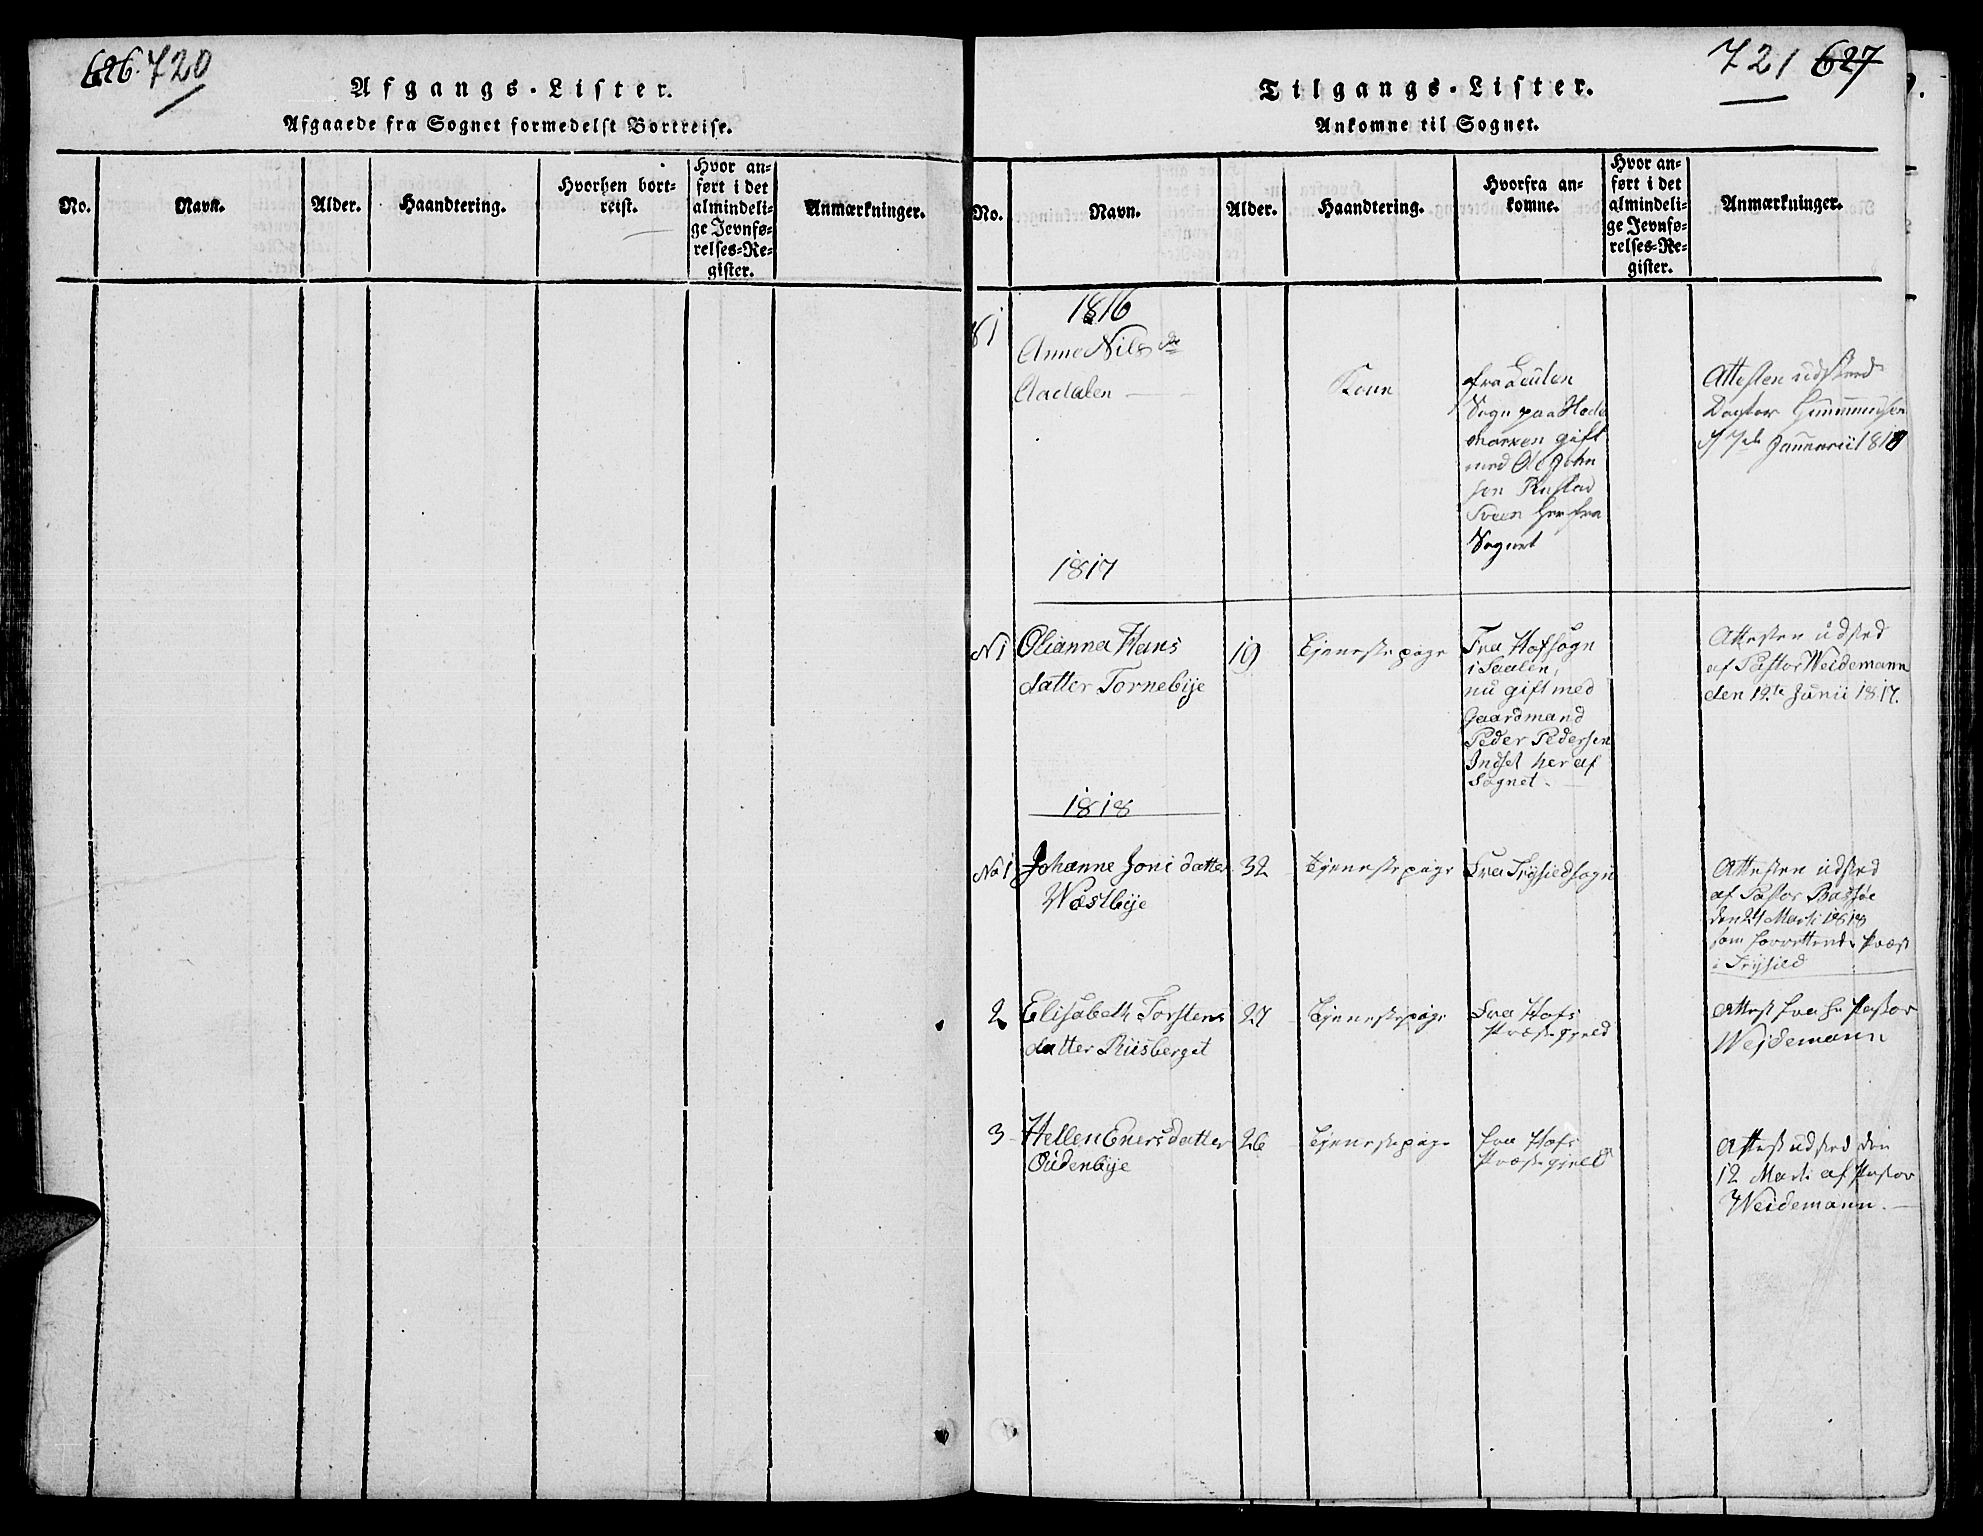 626. 720
Afgangs-Lister.
Afgaaede fra Sognet formedelst Bortreise.
No.
Navn.
Alder.
Haandtering.
Hvorhen bort-
reist.
Hvor an-
ført i det
almindeli-
ge Jevnfø-
relses-Re-
gister.
Anmærkninger.
721 627
Tilgangs-Lister.
Ankomne til Sognet.
No.
Navn.
Alder.
Haandtering.
Hvorfra an-
komne.
Hvor an-
ført i det
almindeli-
ge Jevnfø-
relses-Re-
gister.
Anmærkninger.
1816
N 1
Anne Nils
Aadalen
Kone
fra
Sogn paa Hede
marken gift
med Ole John
sen
Sveen her fra
Sognet
Attesten udsted
7de Januarii
1817
N 1
Olianna Hans
datter Tornebÿe
19
Tjenestepige
Fra Hofsogn
i Saalen,
nu gift med
Gaardmand
Peder Pedersen
Indset her af
Sognet.
Attesten udsted
af Pastor Weidemann
den 12te Junii 1817.
1818
No 1
Johanne Joni datter
Westbÿe
32
Tjenestepige
Fra Trÿsildsogn
Attesten udsted
af Pastor Bassøe
den 24 Marti 1818
som forrettende Præst
i Trÿsild
2
Elisabeth Torstens
datter Riisberget
27
Tjenestepige
Fra Hofs
Præstegjeld
Attest fra Hr Pastor
Weidemann
3
Hellen Enersdatter
Oudenbÿe
26
Tjenestepige
fra Hofs
Præstegjeld
Attest udsted den
12 Marti af Pastor
Weidemann.